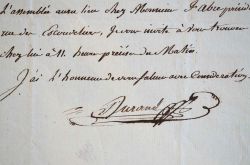 L'assemblée aura lieu chez Monsieur
rue du je vous invite à vous trouver
chez lui à 11 heures précises du Matin.
J'ai l'honneur de vous saluer avec Considération
Durand